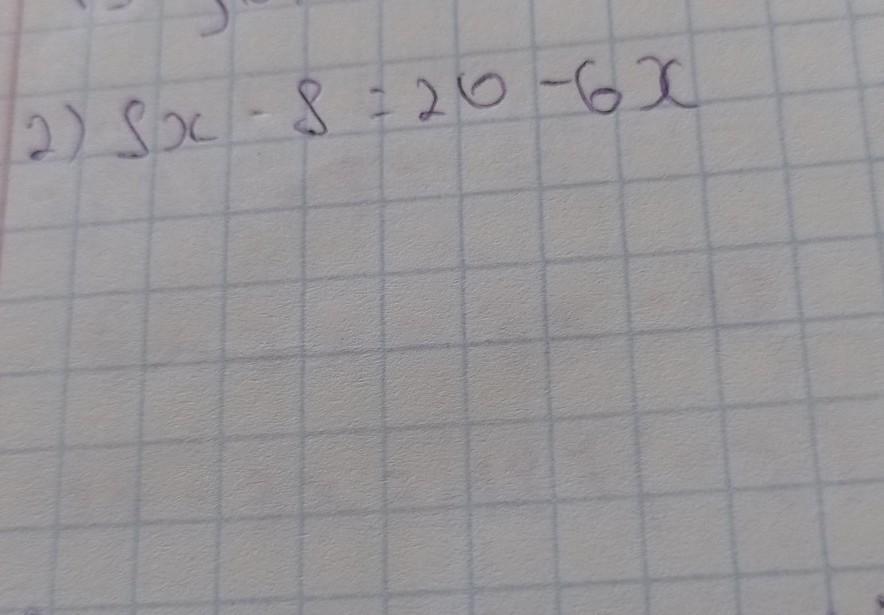 2) 8x - 8 = 20 - 6x